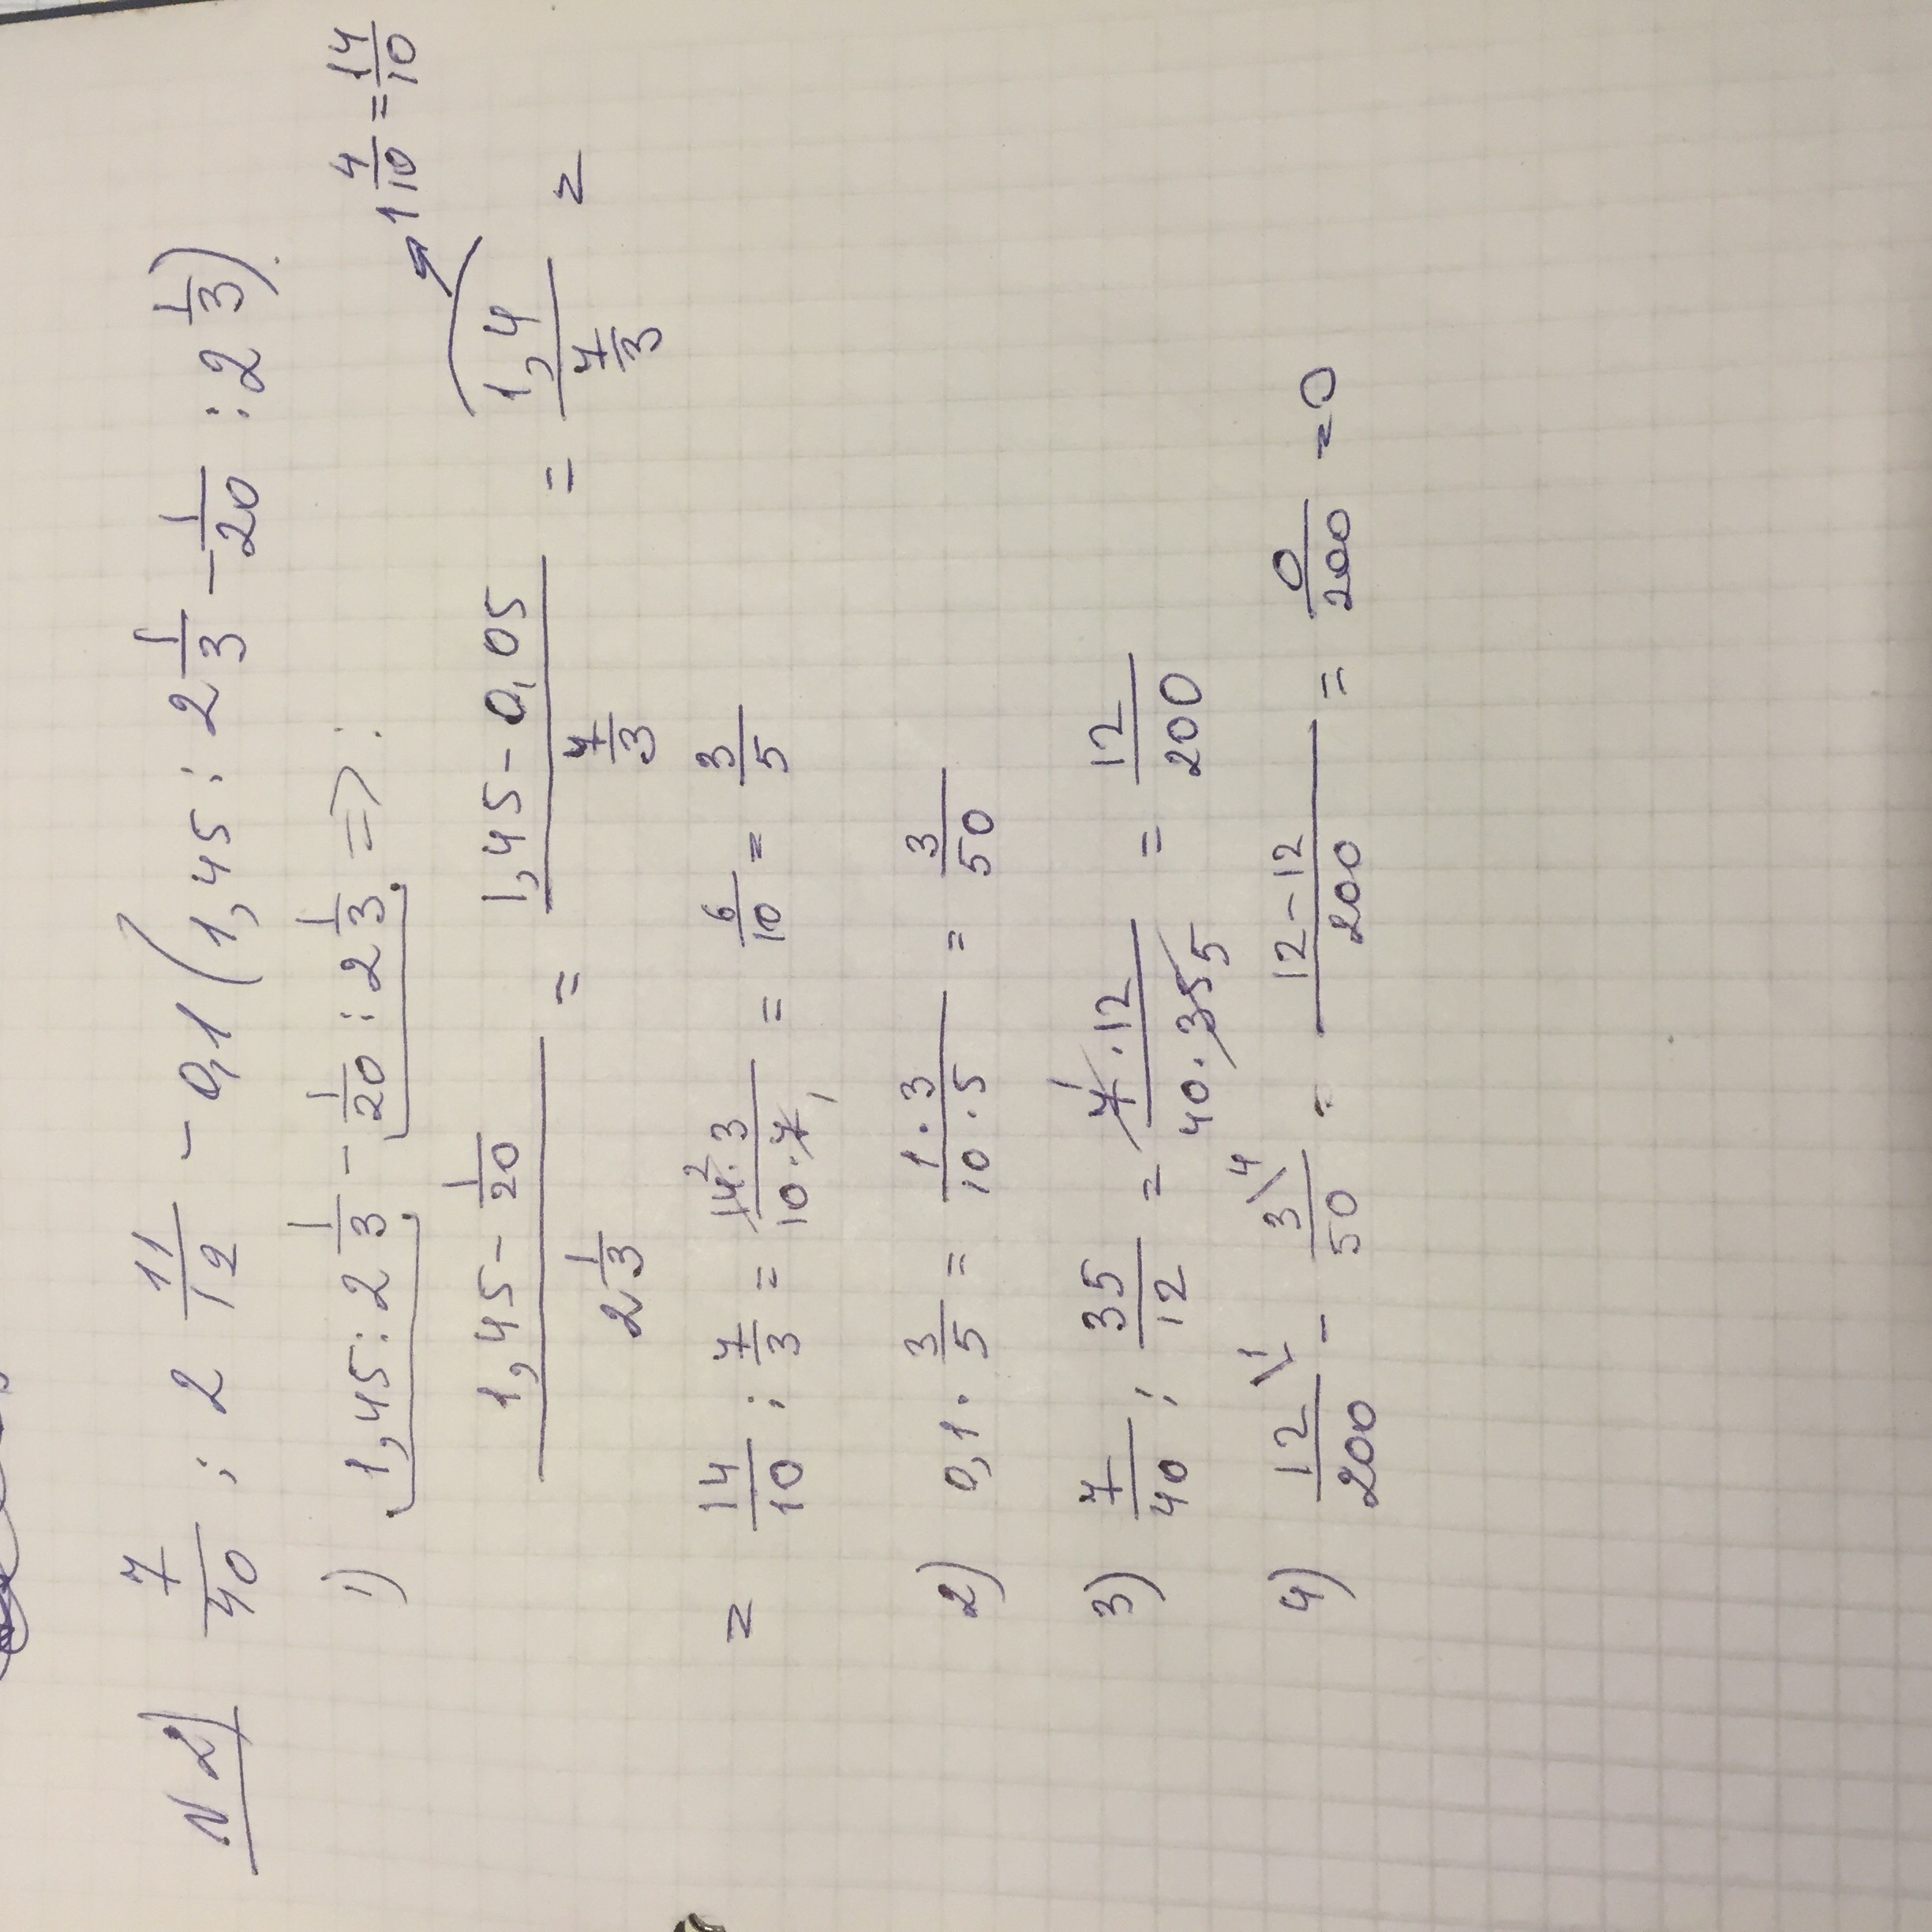 N 2) 7/40 : 2 11/12 - 0,1 (1,45 : 2 1/3 - 1/20 : 2 1/3)
1) 1,45 : 2 1/3 - 1/20 : 2 1/3 => :
1 4/10 = 14/10
(1,45 - 1/20)/(2 1/3) = (1,45 - 0,05)/(7/3) = 1,4/(7/3) =
= 14/10 : 7/3 = (14 2 · 3)/(10 · 7 1) = 6/10 = 3/5
2) 0,1 · 3/5 = (1 · 3)/(10 · 5) = 3/50
3) 7/40 : 35/12 = (7 1 · 12)/(40 · 35 5) = 12/200
4) 12\1/200 - 3\4/50 = (12 - 12)/200 = 0/200 = 0